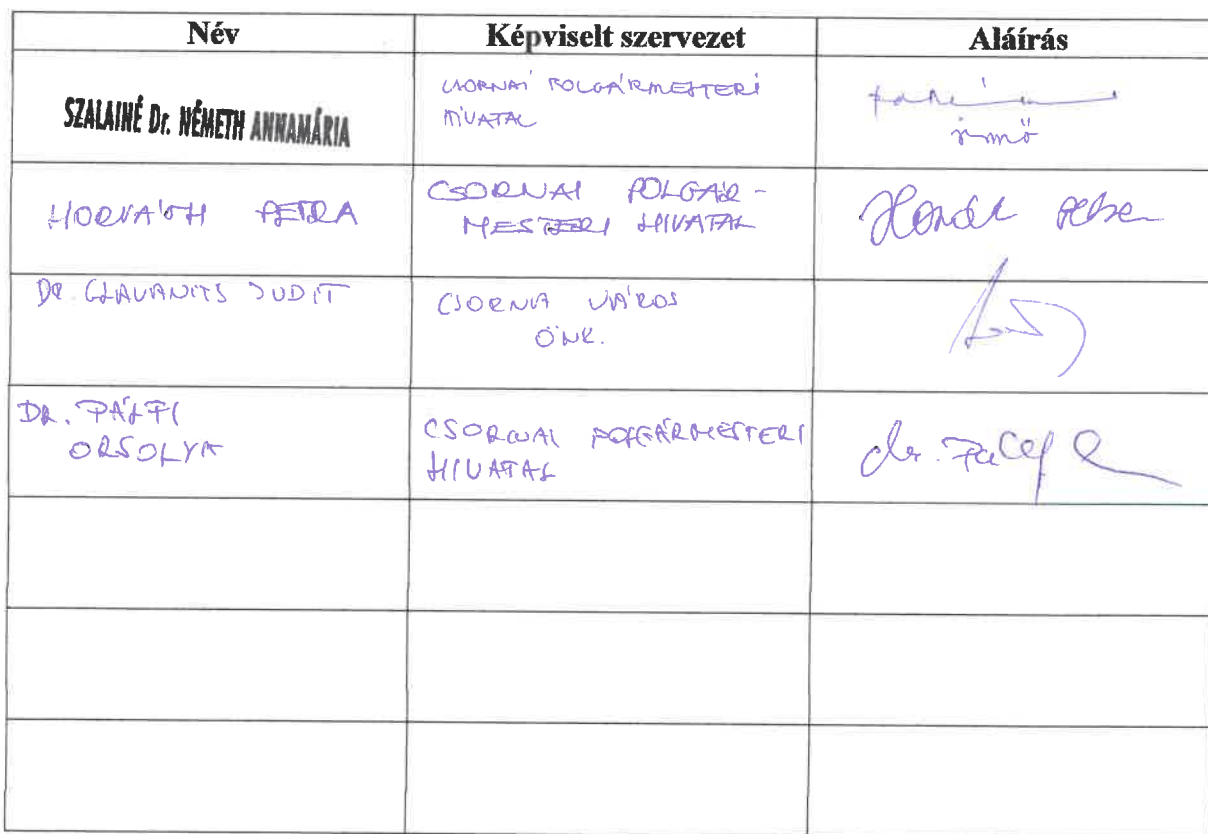 Név Képviselt szervezet Aláírás
SZALAINÉ Dr. NÉMETH ANNAMÁRIA
CSORNAI POLGÁRMESTERI
HIVATAL
jznő
HORVÁTH PETRA
CSORNAI POLGÁR-
MESTERI HIVATAL
Horváth Petra
DR. GLAVANITS JUDIT
CSORNA VÁROS
ÖNK.
DR. PÁLFI
ORSOLYA
CSORNAI POLGÁRMESTERI
HIVATAL
dr. Pálfi O